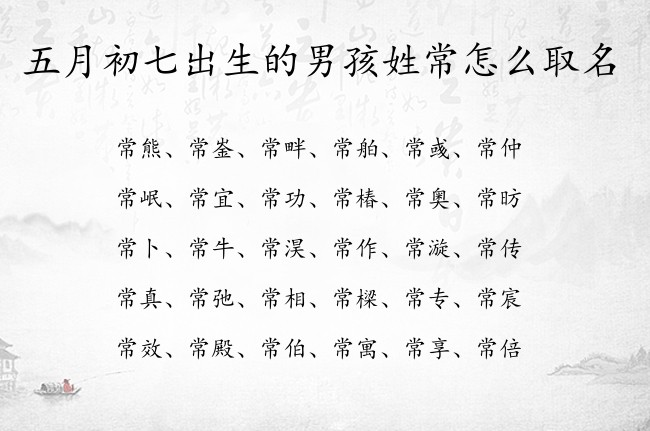 五月初七出生的男孩姓常怎么取名
常熊、常崟、常畔、常舶、常彧、常仲
常岷、常宜、常功、常椿、常奥、常昉
常卜、常牛、常淏、常作、常漩、常传
常真、常弛、常相、常樑、常专、常宸
常效、常殿、常伯、常寓、常享、常倍